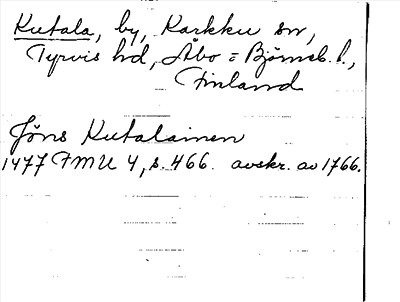 Kutala, by, Karkku sn,
Tyrvis hd, Åbo = Björneb. l.,
Finland
Jöns Kutalainen
1477 FMU 4, s. 466. avskr. av 1766.